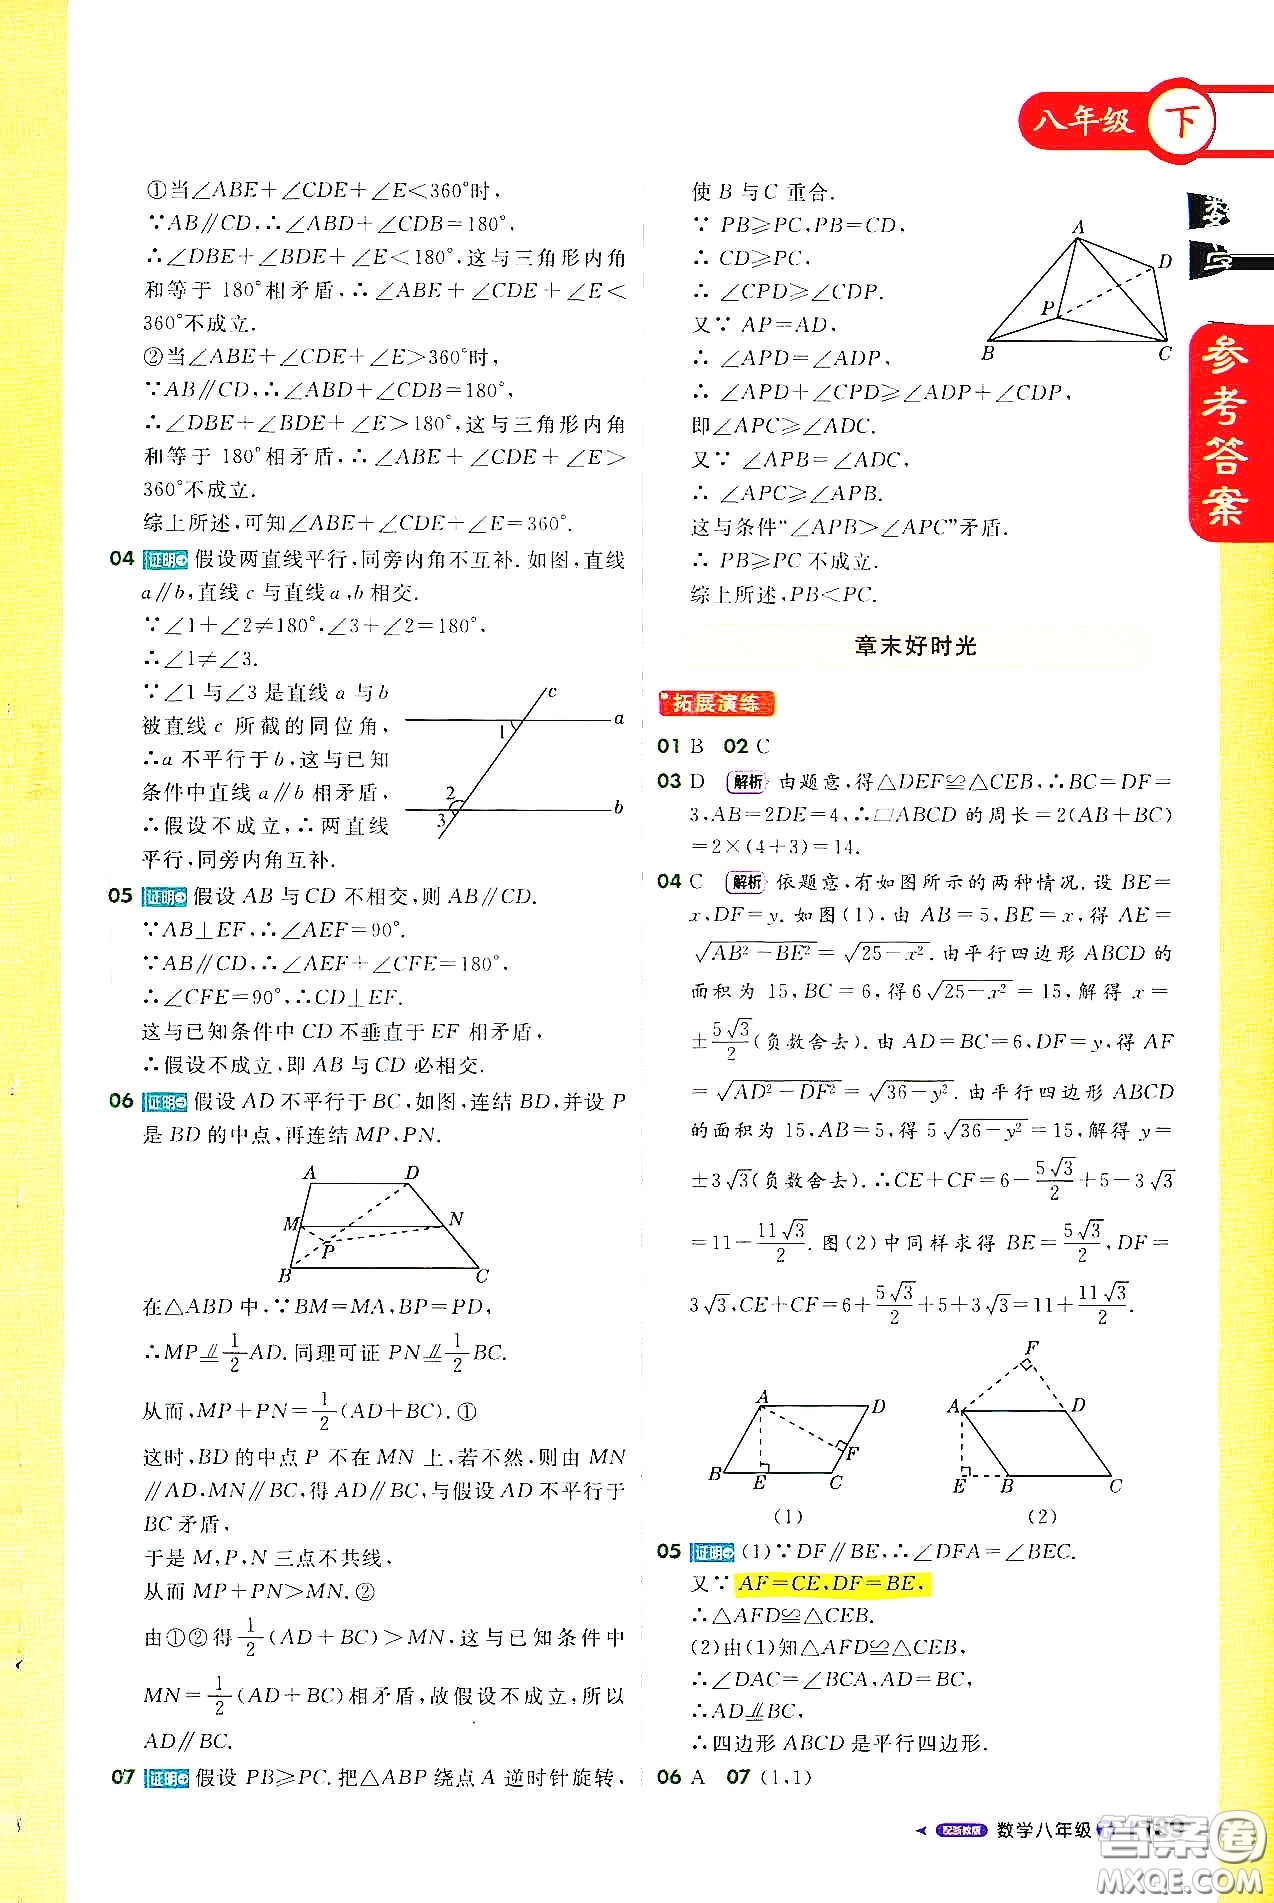 八年级 下
参考答案
①当∠ABE+∠CDE+∠E<360°时,
∵AB∥CD,∴∠ABD+∠CDB=180°.
∴∠DBE+∠BDE+∠E<180°,这与三角形内角
和等于 180°相矛盾,∴∠ABE+∠CDE+∠E<
360°不成立.
②当∠ABE+∠CDE+∠E>360°时,
∵AB∥CD,∴∠ABD+∠CDB=180°,
∴∠DBE+∠BDE+∠E>180°,这与三角形内角
和等于 180°相矛盾,∴∠ABE+∠CDE+∠E>
360°不成立.
综上所述,可知∠ABE+∠CDE+∠E=360°.
04 证明 假设两直线平行,同旁内角不互补.如图,直线
a∥b,直线 c 与直线 a,b 相交.
∵∠1+∠2≠180°,∠3+∠2=180°,
∴∠1≠∠3.
∵∠1 与∠3 是直线 a 与 b
被直线 c 所截的同位角,
∴a 不平行于 b,这与已知
条件中直线 a∥b 相矛盾,
∴假设不成立,∴两直线
平行,同旁内角互补.
c
1 a
2
3 b
05 证明 假设 AB 与 CD 不相交,则 AB∥CD.
∵AB⊥EF,∴∠AEF=90°.
∵AB∥CD,∴∠AEF+∠CFE=180°,
∴∠CFE=90°,∴CD⊥EF.
这与已知条件中 CD 不垂直于 EF 相矛盾,
∴假设不成立,即 AB 与 CD 必相交.
06 证明 假设 AD 不平行于 BC,如图,连结 BD,并设 P
是 BD 的中点,再连结 MP,PN.
A D
M N
P
B C
在△ABD 中,∵BM=MA,BP=PD,
∴MP⫽1/2AD.同理可证 PN⫽1/2BC.
从而,MP+PN=1/2(AD+BC).①
这时,BD 的中点 P 不在 MN 上,若不然,则由 MN
∥AD,MN∥BC,得 AD∥BC,与假设 AD 不平行于
BC 矛盾,
于是 M,P,N 三点不共线,
从而 MP+PN>MN.②
由①②得1/2(AD+BC)>MN,这与已知条件中
MN=1/2(AD+BC)相矛盾,故假设不成立,所以
AD∥BC.
07 证明 假设 PB≥PC.把△ABP 绕点 A 逆时针旋转,
使 B 与 C 重合.
∵ PB≥PC,PB=CD,
∴ CD≥PC,
∴ ∠CPD≥∠CDP.
又∵ AP=AD,
∴ ∠APD=∠ADP,
∴ ∠APD+∠CPD≥∠ADP+∠CDP,
即∠APC≥∠ADC.
又∵ ∠APB=∠ADC,
∴ ∠APC≥∠APB.
这与条件“∠APB>∠APC”矛盾.
∴ PB≥PC 不成立.
综上所述,PB<PC.
A
D
P
B C
章末好时光
拓展演练
01 B 02 C
03 D 解析 由题意,得△DEF≌△CEB,∴BC=DF=
3,AB=2DE=4,∴▱ABCD 的周长=2(AB+BC)
=2×(4+3)=14.
04 C 解析 依题意,有如图所示的两种情况.设 BE=
x,DF=y. 如图(1),由 AB=5,BE=x,得 AE=
√(AB²-BE²)=√(25-x²).由平行四边形 ABCD 的
面积为 15,BC=6,得6√(25-x²)=15,解得 x=
±5√3/2(负数舍去).由 AD=BC=6,DF=y,得 AF
=√(AD²-DF²)=√(36-y²).由平行四边形 ABCD
的面积为 15,AB=5,得 5√(36-y²)=15,解得 y=
±3√3(负数舍去).∴CE+CF=6-5√3/2+5-3√3
=11-11√3/2. 图(2)中同样求得 BE=5√3/2,DF=
3√3,CE+CF=6+5√3/2+5+3√3=11+11√3/2.
A D
F
B E C
(1)
F
A D
E B C
(2)
05 证明 (1)∵DF∥BE,∴∠DFA=∠BEC.
又∵AF=CE,DF=BE,
∴△AFD≌△CEB.
(2)由(1)知△AFD≌△CEB,
∴∠DAC=∠BCA,AD=BC,
∴AD⫽BC,
∴四边形 ABCD 是平行四边形.
06 A 07 (1,1)
配浙教版 数学八年级
答案卷
MXQE.COM